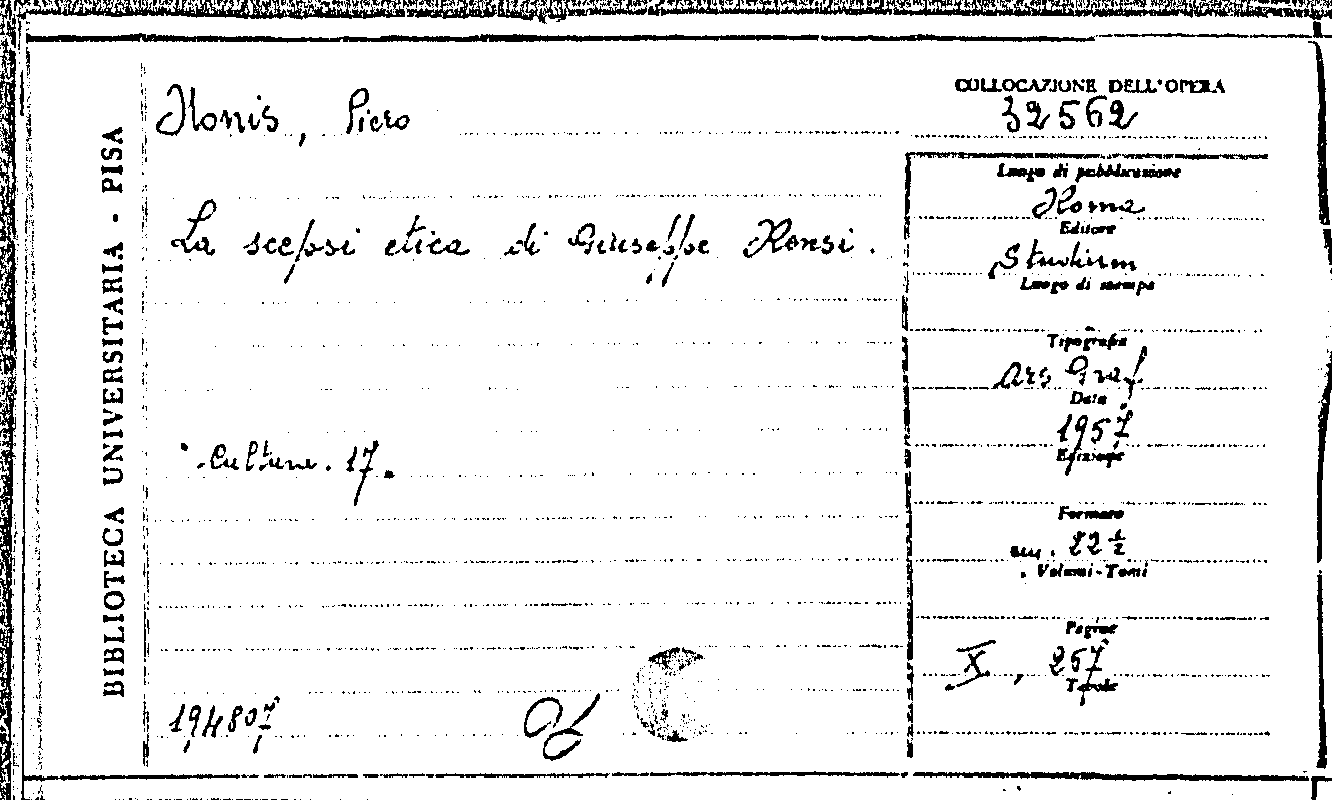 BIBLIOTECA UNIVERSITARIA - PISA
Nonis, Piero
La scepsi etica di Giuseppe Rensi.
Cultura. 17.
194807
COLLOCAZIONE DELL'OPERA
32562
Luogo di pubblicazione
Roma
Editore
Studium
Luogo di stampa
Tipografia
Ars Graf.
Data
1957
Edizione
Formato
cm. 22 ½
Volumi-Tomi
Pagine
X, 257
Tavole